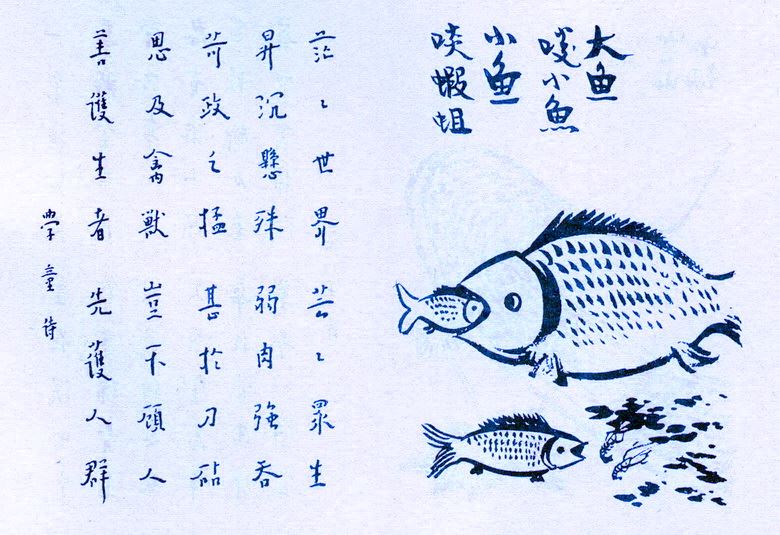 大鱼
啖小魚
小鱼
啖蝦蛆
茫〻世界 芸〻眾生
昇沉懸殊 弱肉強吞
苛政之猛 甚於刀砧
恩及禽獸 豈不顧人
善護生者 先護人群
學童詩